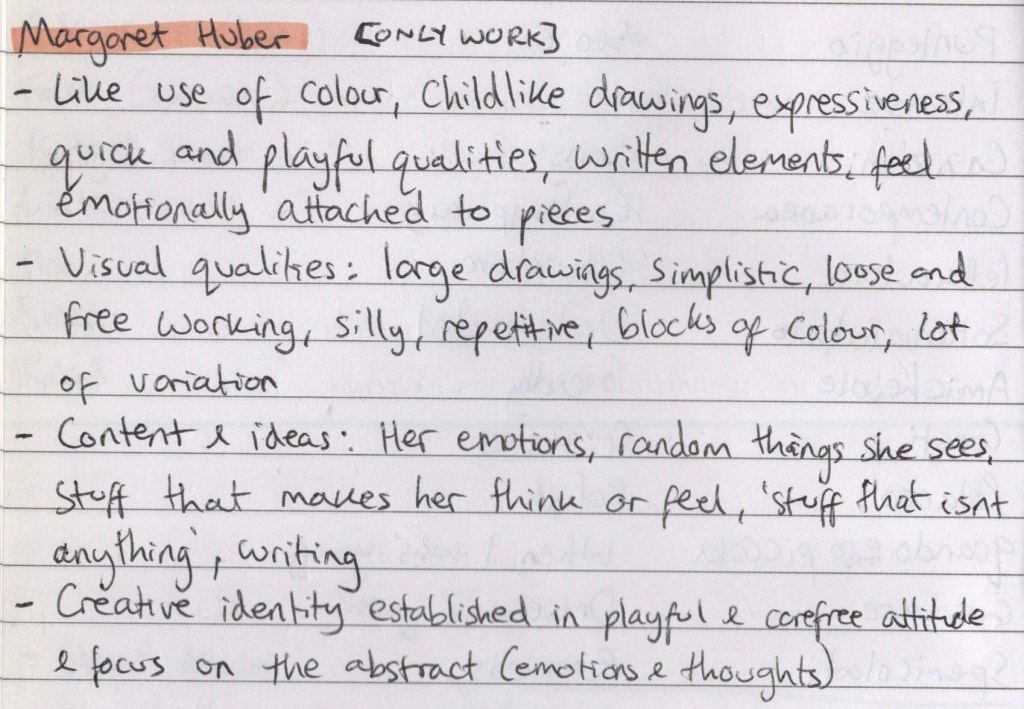 Margaret Huber [ONLY WORK]
- Like use of colour, Childlike drawings, expressiveness,
quick and playful qualities, written elements, feel
emotionally attached to pieces
Visual qualities: large drawings, simplistic, loose and
free working, silly, repetitive, blocks of colour, lot
of variation
- Content & ideas: Her emotions, random things she sees,
Stuff that makes her think or feel, 'stuff that isnt
anything', writing
- Creative identity established in playful & carefree attitude
& focus on the abstract (emotions & thoughts)